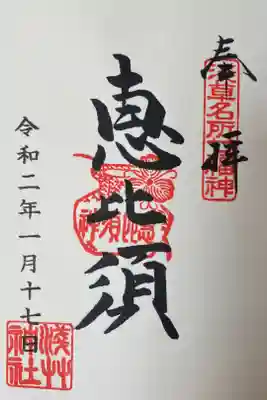 奉拝
浅草名所七福神
恵比須
令和二年一月十七日
浅草神社